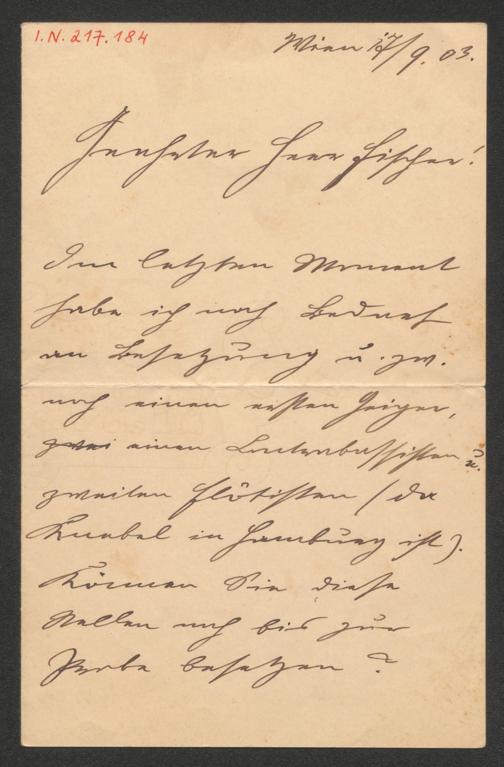 I.N. 217.184
Wien 17/9. 03.
Geehrter Herr Fischer!
Im letzten Moment
habe ich noch Bedarf
an Besetzung u. zw.
noch einen ersten Geiger,
zwei einen Contrabassisten u.
zweiten Flötisten (da
Knebel in Hamburg ist).
Können Sie diese
Stellen noch bis zur
Probe besetzen?